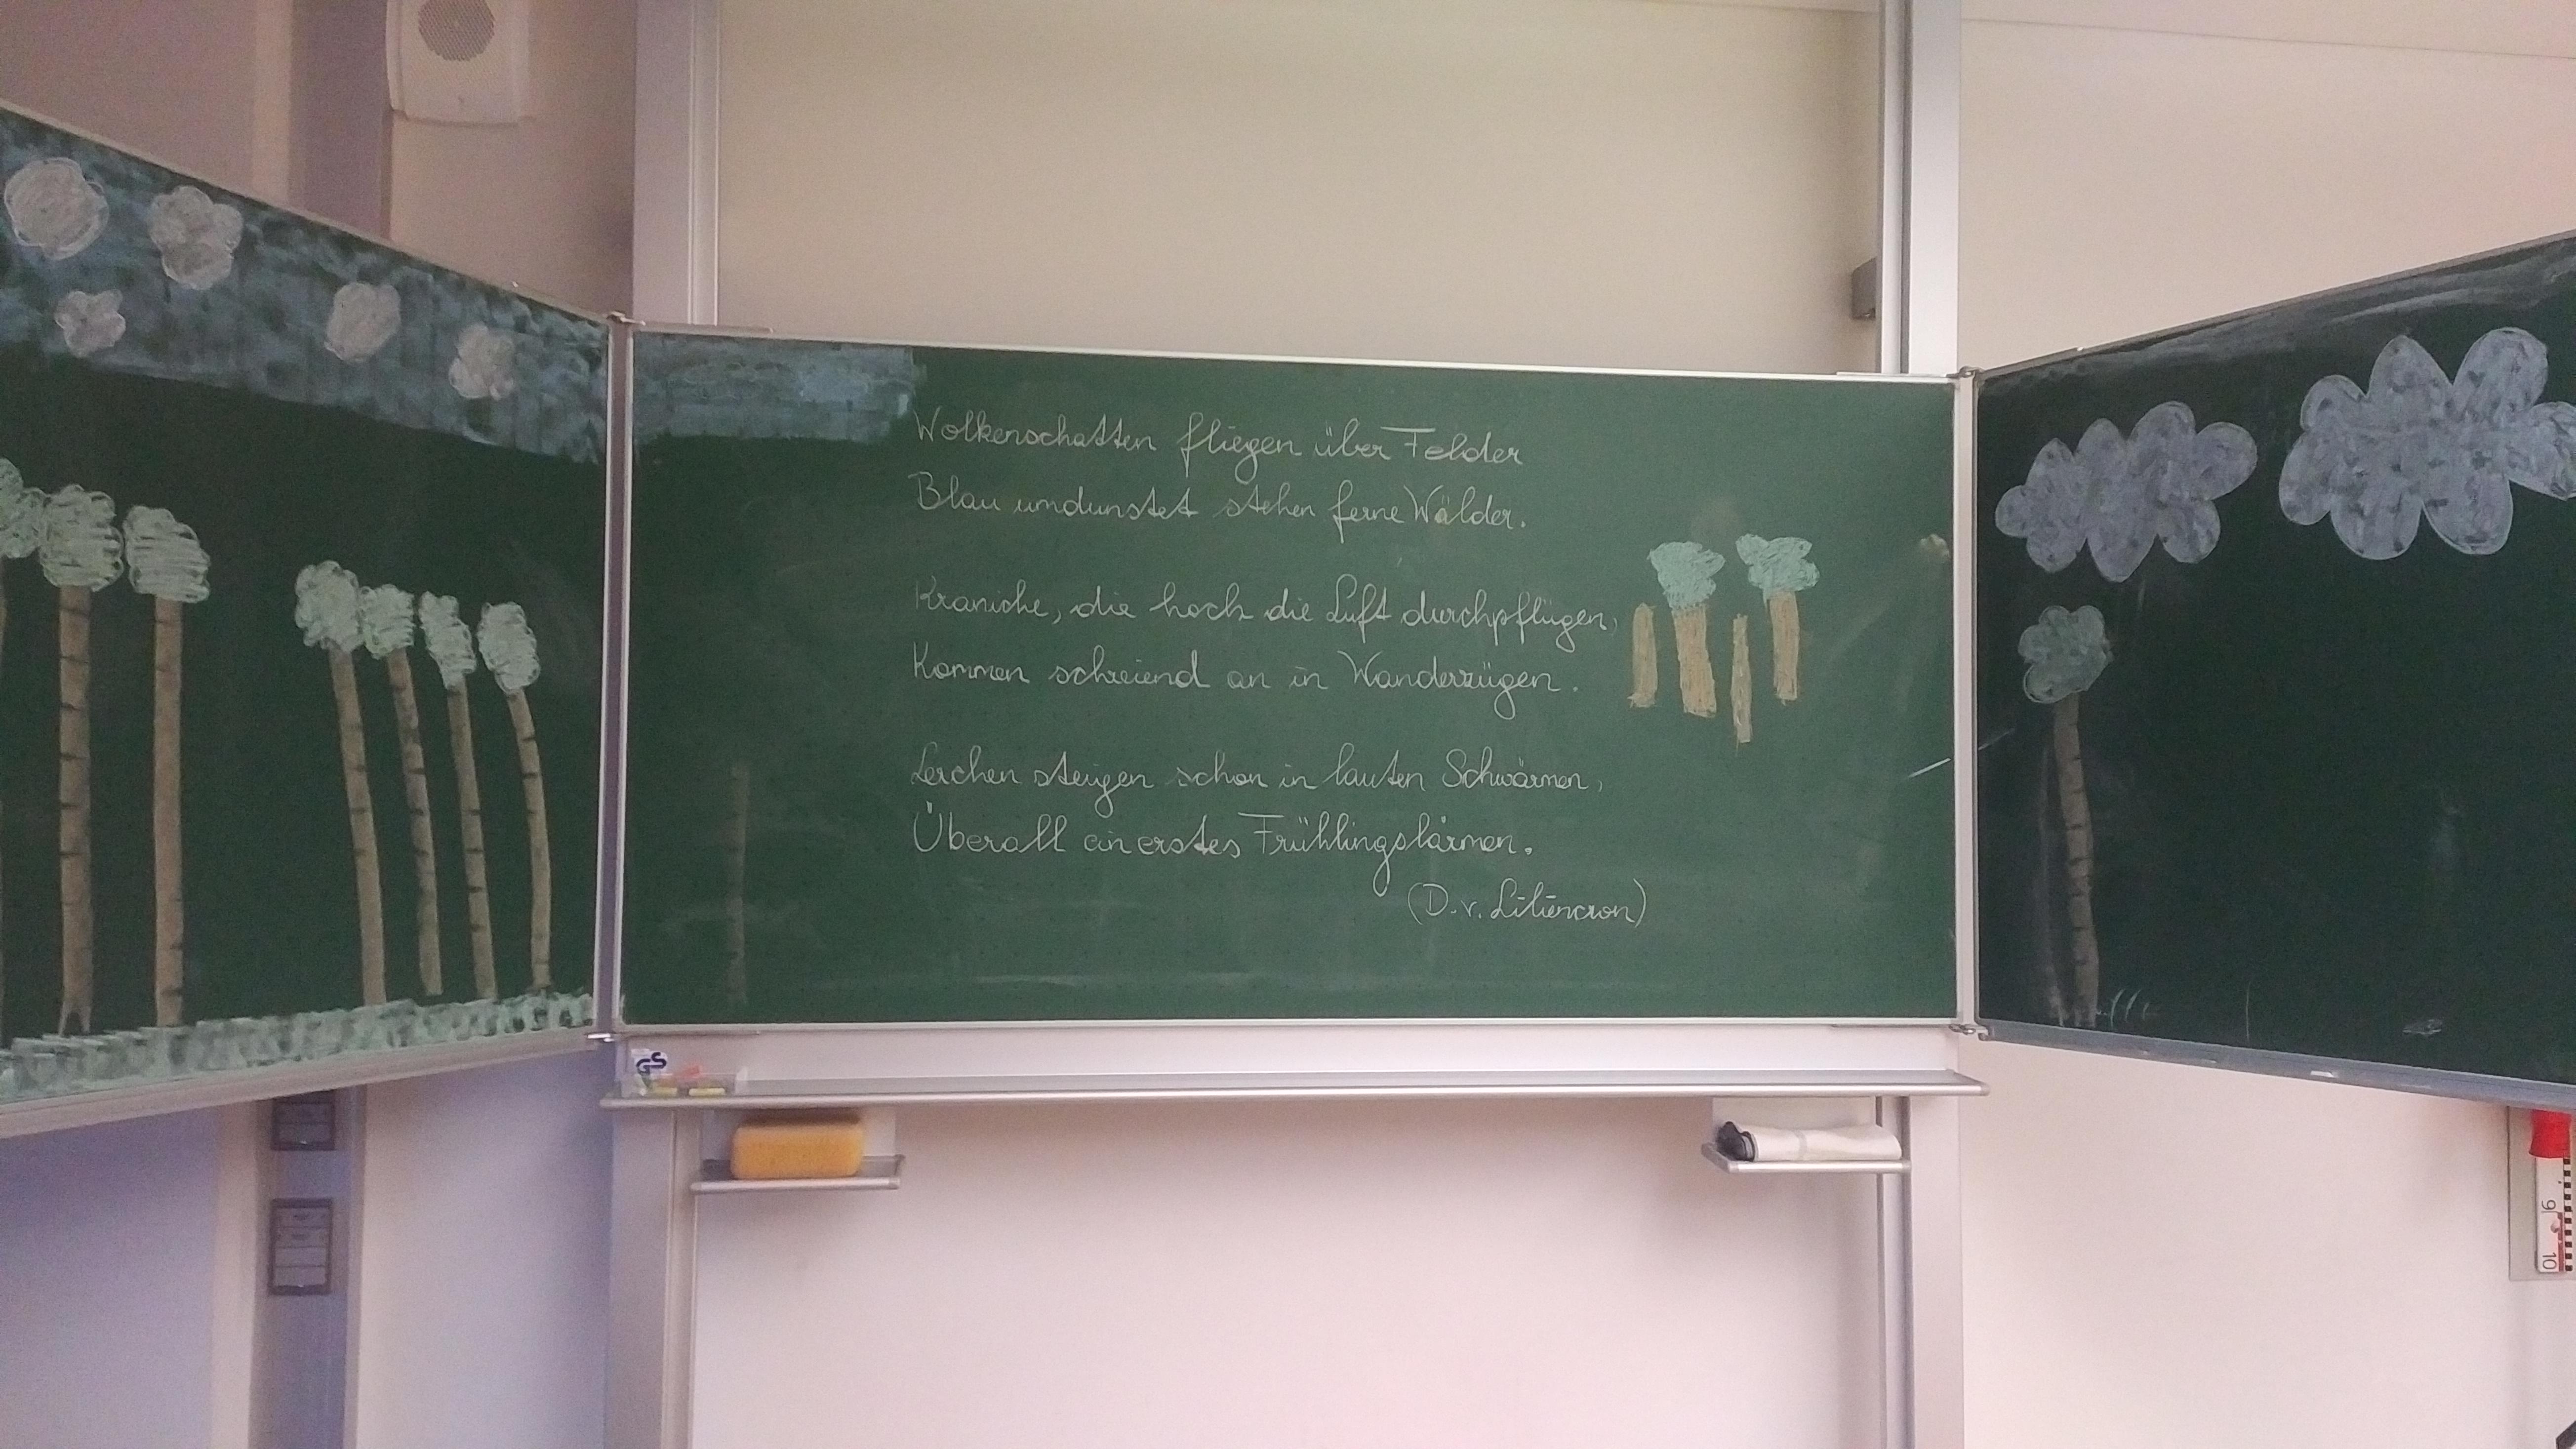 Wolkenschatten fliegen über Felder
Blau umdunstet stehen ferne Wälder.
Kraniche, die hoch die Luft durchpflügen,
Kommen schreiend an in Wanderzügen.
Lerchen steigen schon in lauten Schwärmen,
Überall ein erstes Frühlingslärmen.
(D. v. Liliencron)
GS
9
10